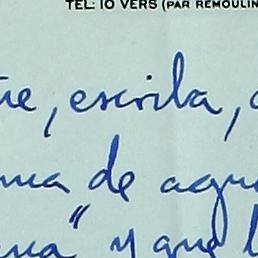 TEL: 10 VERS (PAR REMOULIN
, escrila,
de agu
" y que l